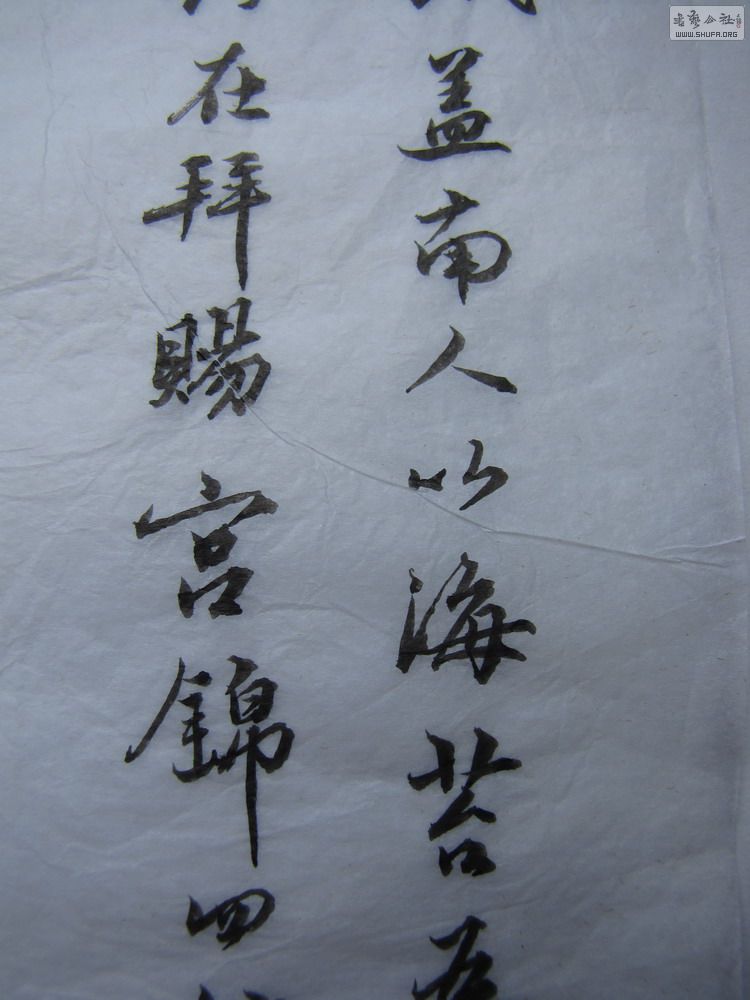 盖南人以海苔
在拜賜宮錦四
書藝公社
WWW.SHUFA.ORG